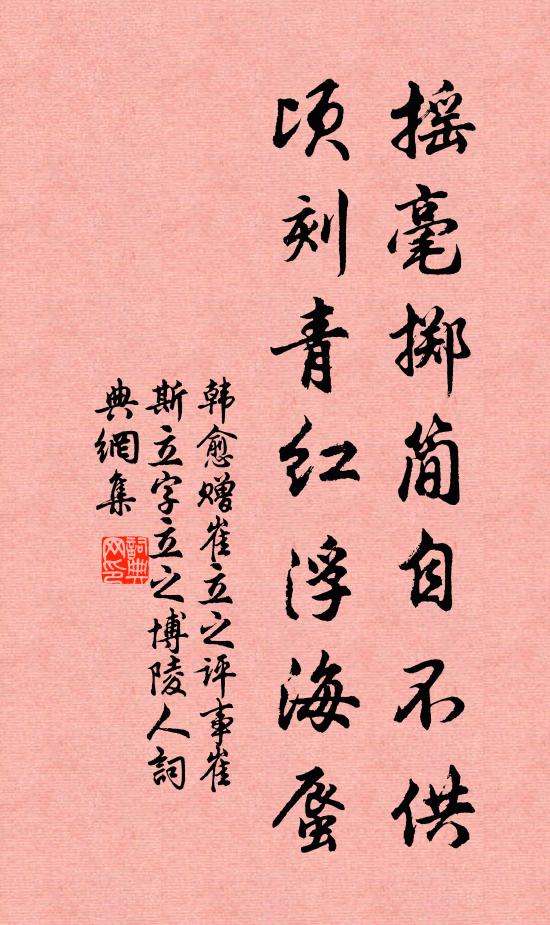 摇毫掷简自不供
顷刻青红浮海蜃
韩愈赠崔立之评事崔
斯立字立之博陵人词
典網集
詞典网印